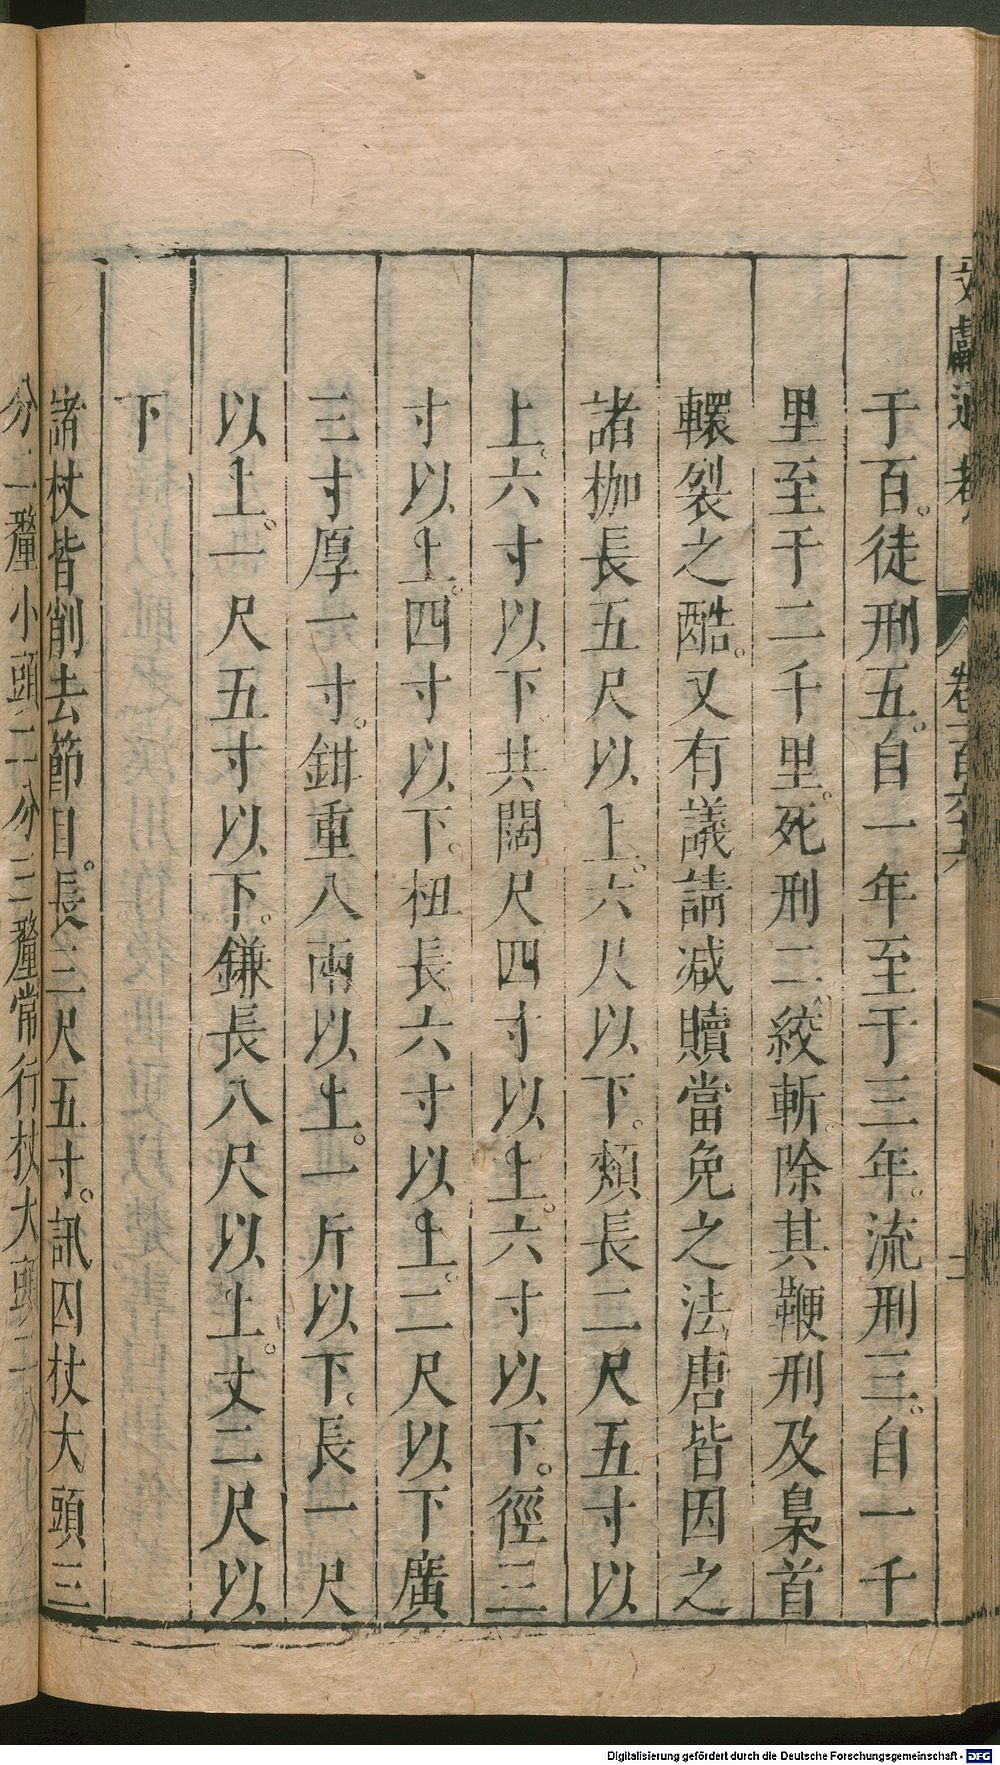 文獻通考 卷一百六十六
于百。徒刑五。自一年至于三年。流刑三。自一千
里至于二千里。死刑二。絞斬。除其鞭刑及梟首
轘裂之酷。又有議請减贖當免之法唐皆因之
諸枷長五尺以上。六尺以下。頰長二尺五寸以
上。六寸以下。共闊尺四寸以上。六寸以下。徑三
寸以上。四寸以下。杻長六寸以上。二尺以下廣
三寸厚一寸。鉗重八兩以上。一斤以下。長一尺
以上。一尺五寸以下。鎌長八尺以上。丈二尺以
下
諸杖皆削去節目。長三尺五寸。訊囚杖大頭三
分二釐小頭二分二釐常行杖大頭二分
Digitalisierung gefördert durch die Deutsche Forschungsgemeinschaft - DFG